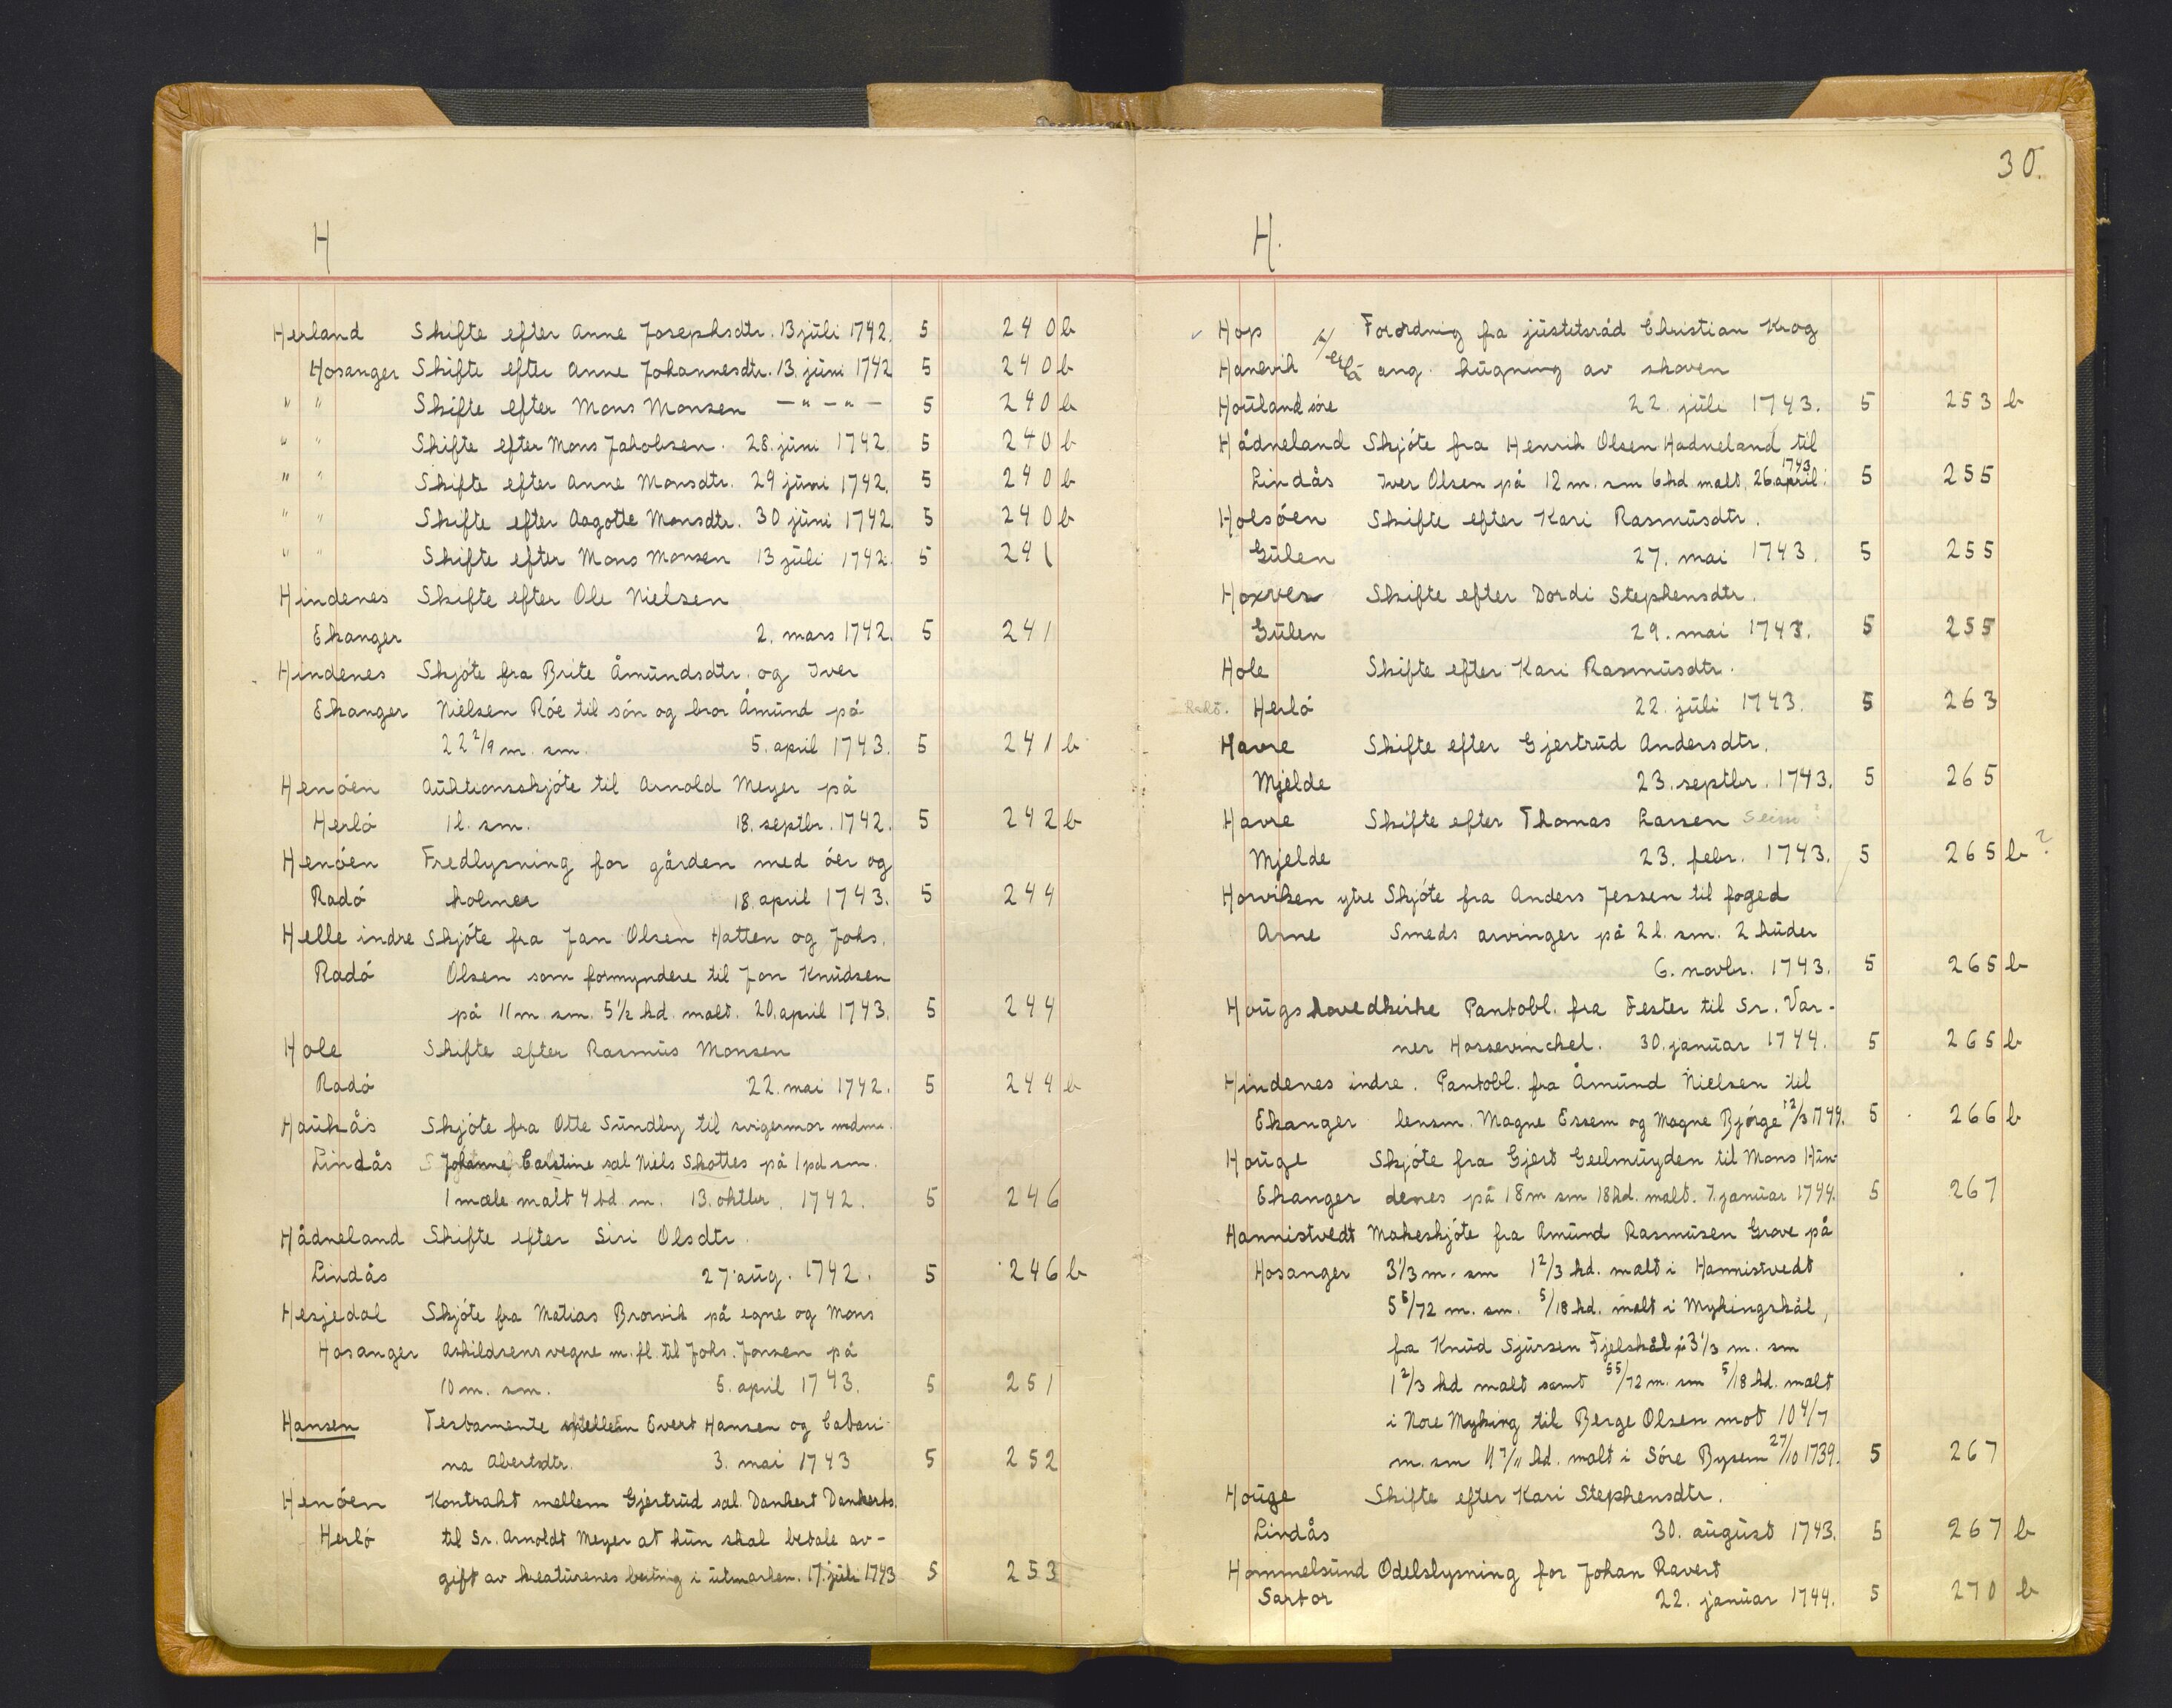 H
Herland Skifte efter Anne Josephsdtr. 13 juli 1742. 5 240 b
Hosanger Skifte efter Anne Johannesdtr. 13. juni 1742 5 240 b
" " Skifte efter Mons Monsen — " — " — 5 240 b
" " Skifte efter Mons Jakobsen. 28. juni 1742. 5 240 b
" " Skifte efter Anne Monsdtr. 29 juni 1742. 5 240 b
" " Skifte efter Aagotte Monsdtr. 30 juni 1742. 5 240 b
" " Skifte efter Mons Monsen 13 juli 1742. 5 241
Hindenes Skifte efter Ole Nielsen
Ekanger 2. mars 1742. 5 241
Hindenes Skjöte fra Brite Åmundsdtr. og Iver
Ekanger Nielsen Röe til sön og bror Åmund på
22 2/9 m. sm. 5. april 1743. 5 241 b
Henöen Auktionsskjöte til Arnold Meyer på
Herlö 1 l. sm. 18. septbr. 1742. 5 242 b
Henöen Fredlysning for gården med öer og
Radö holmer 18. april 1743. 5 244
Helle indre Skjöte fra Jan Olsen Hatten og Johs.
Radö Olsen som formyndere til Jon Knudsen
på 11 m. sm. 5½ hd. malt. 20. april 1743. 5 244
Hole Skifte efter Rasmus Monsen
Radö 22. mai 1742. 5 244 b
Haukås Skjöte fra Otte Sundby til svigermor mdme.
Lindås Johanne Carstine sal Niels Skottes på 1 pd sm.
1 mæle malt 4 bd. m. 13. oktbr. 1742. 5 246
Hådneland Skifte efter Siri Olsdtr.
Lindås 27 aug. 1742. 5 246 b
Hesjedal Skjöte fra Matias Brorvik på egne og Mons
Hosanger Askildsens vegne m. fl. til Johs. Jonsen på
10 m. sm. 5. april 1743. 5 251
Hansen Testamente mellem Evert Hansen og Catari-
na Abertsdtr. 3. mai 1743 5 252
Henöen Kontrakt mellem Gjertrud sal. Dankert Dankerts.
Herlö til Sr. Arnoldt Meyer at hun skal betale av-
gift av kreaturenes beiting i utmarken. 17. juli 1743 5 253
30.
H.
Hop Forordning fra justitsråd Christian Krog
Hanevik ang. hugning av skoven
Houland söre 22. juli 1743. 5 253 b
Hådneland Skjöte fra Henrik Olsen Hadneland til
Lindås Iver Olsen på 12 m. sm 6 hd malt. 26 april 1743. 5 255
Holsöen Skifte efter Kari Rasmusdtr.
Gulen 27. mai 1743. 5 255
Hoxver Skifte efter Dordi Stephensdtr.
Gulen 29. mai 1743. 5 255
Hole Skifte efter Kari Rasmusdtr.
Radö. Herlö 22. juli 1743. 5 263
Havre Skifte efter Gjertrud Andersdtr.
Mjelde 23. septbr. 1743. 5 265
Havre Skifte efter Thomas Larsen Seim?
Mjelde 23. febr. 1743. 5 265 b ?
Horviken ytre Skjöte fra Anders Jessen til foged
Arne Smeds arvinger på 2 l. sm. 2 huder
6. novbr. 1743. 5 265 b
Hougs hovedkirke Pantobl. fra Fester til Sr. Var-
ner Hossevinckel. 30. januar 1744. 5 265 b
Hindenes indre. Pantobl. fra Åmund Nielsen til
Ekanger lensm. Magne Essem og Magne Bjørge 12/3 1744. 5 266 b
Houge Skjöte fra Gjert Geelmuyden til Mons Hin-
Ekanger denes på 18 m sm 18 hd. malt. 7. januar 1744. 5 267
Hannistvedt Makeskjöte fra Amund Rasmusen Grove på
Hosanger 3 1/3 m. sm 1 2/3 hd. malt i Hannistvedt
5 5/72 m. sm. 5/18 hd. malt i Mykingskål,
fra Knud Sjursen Fjelskål på 3 1/3 m. sm
1 2/3 hd malt samt 55/72 m. sm 5/18 hd. malt
i Nore Myking til Berge Olsen mot 10 4/7
m. sm 4 7/11 hd. malt i Söre Bysem 27/10 1739. 5 267
Houge Skifte efter Kari Stephensdtr.
Lindås 30. august 1743. 5 267 b
Hommelsund Odelslysning for Johan Ravert
Sartor 22. januar 1744. 5 270 b